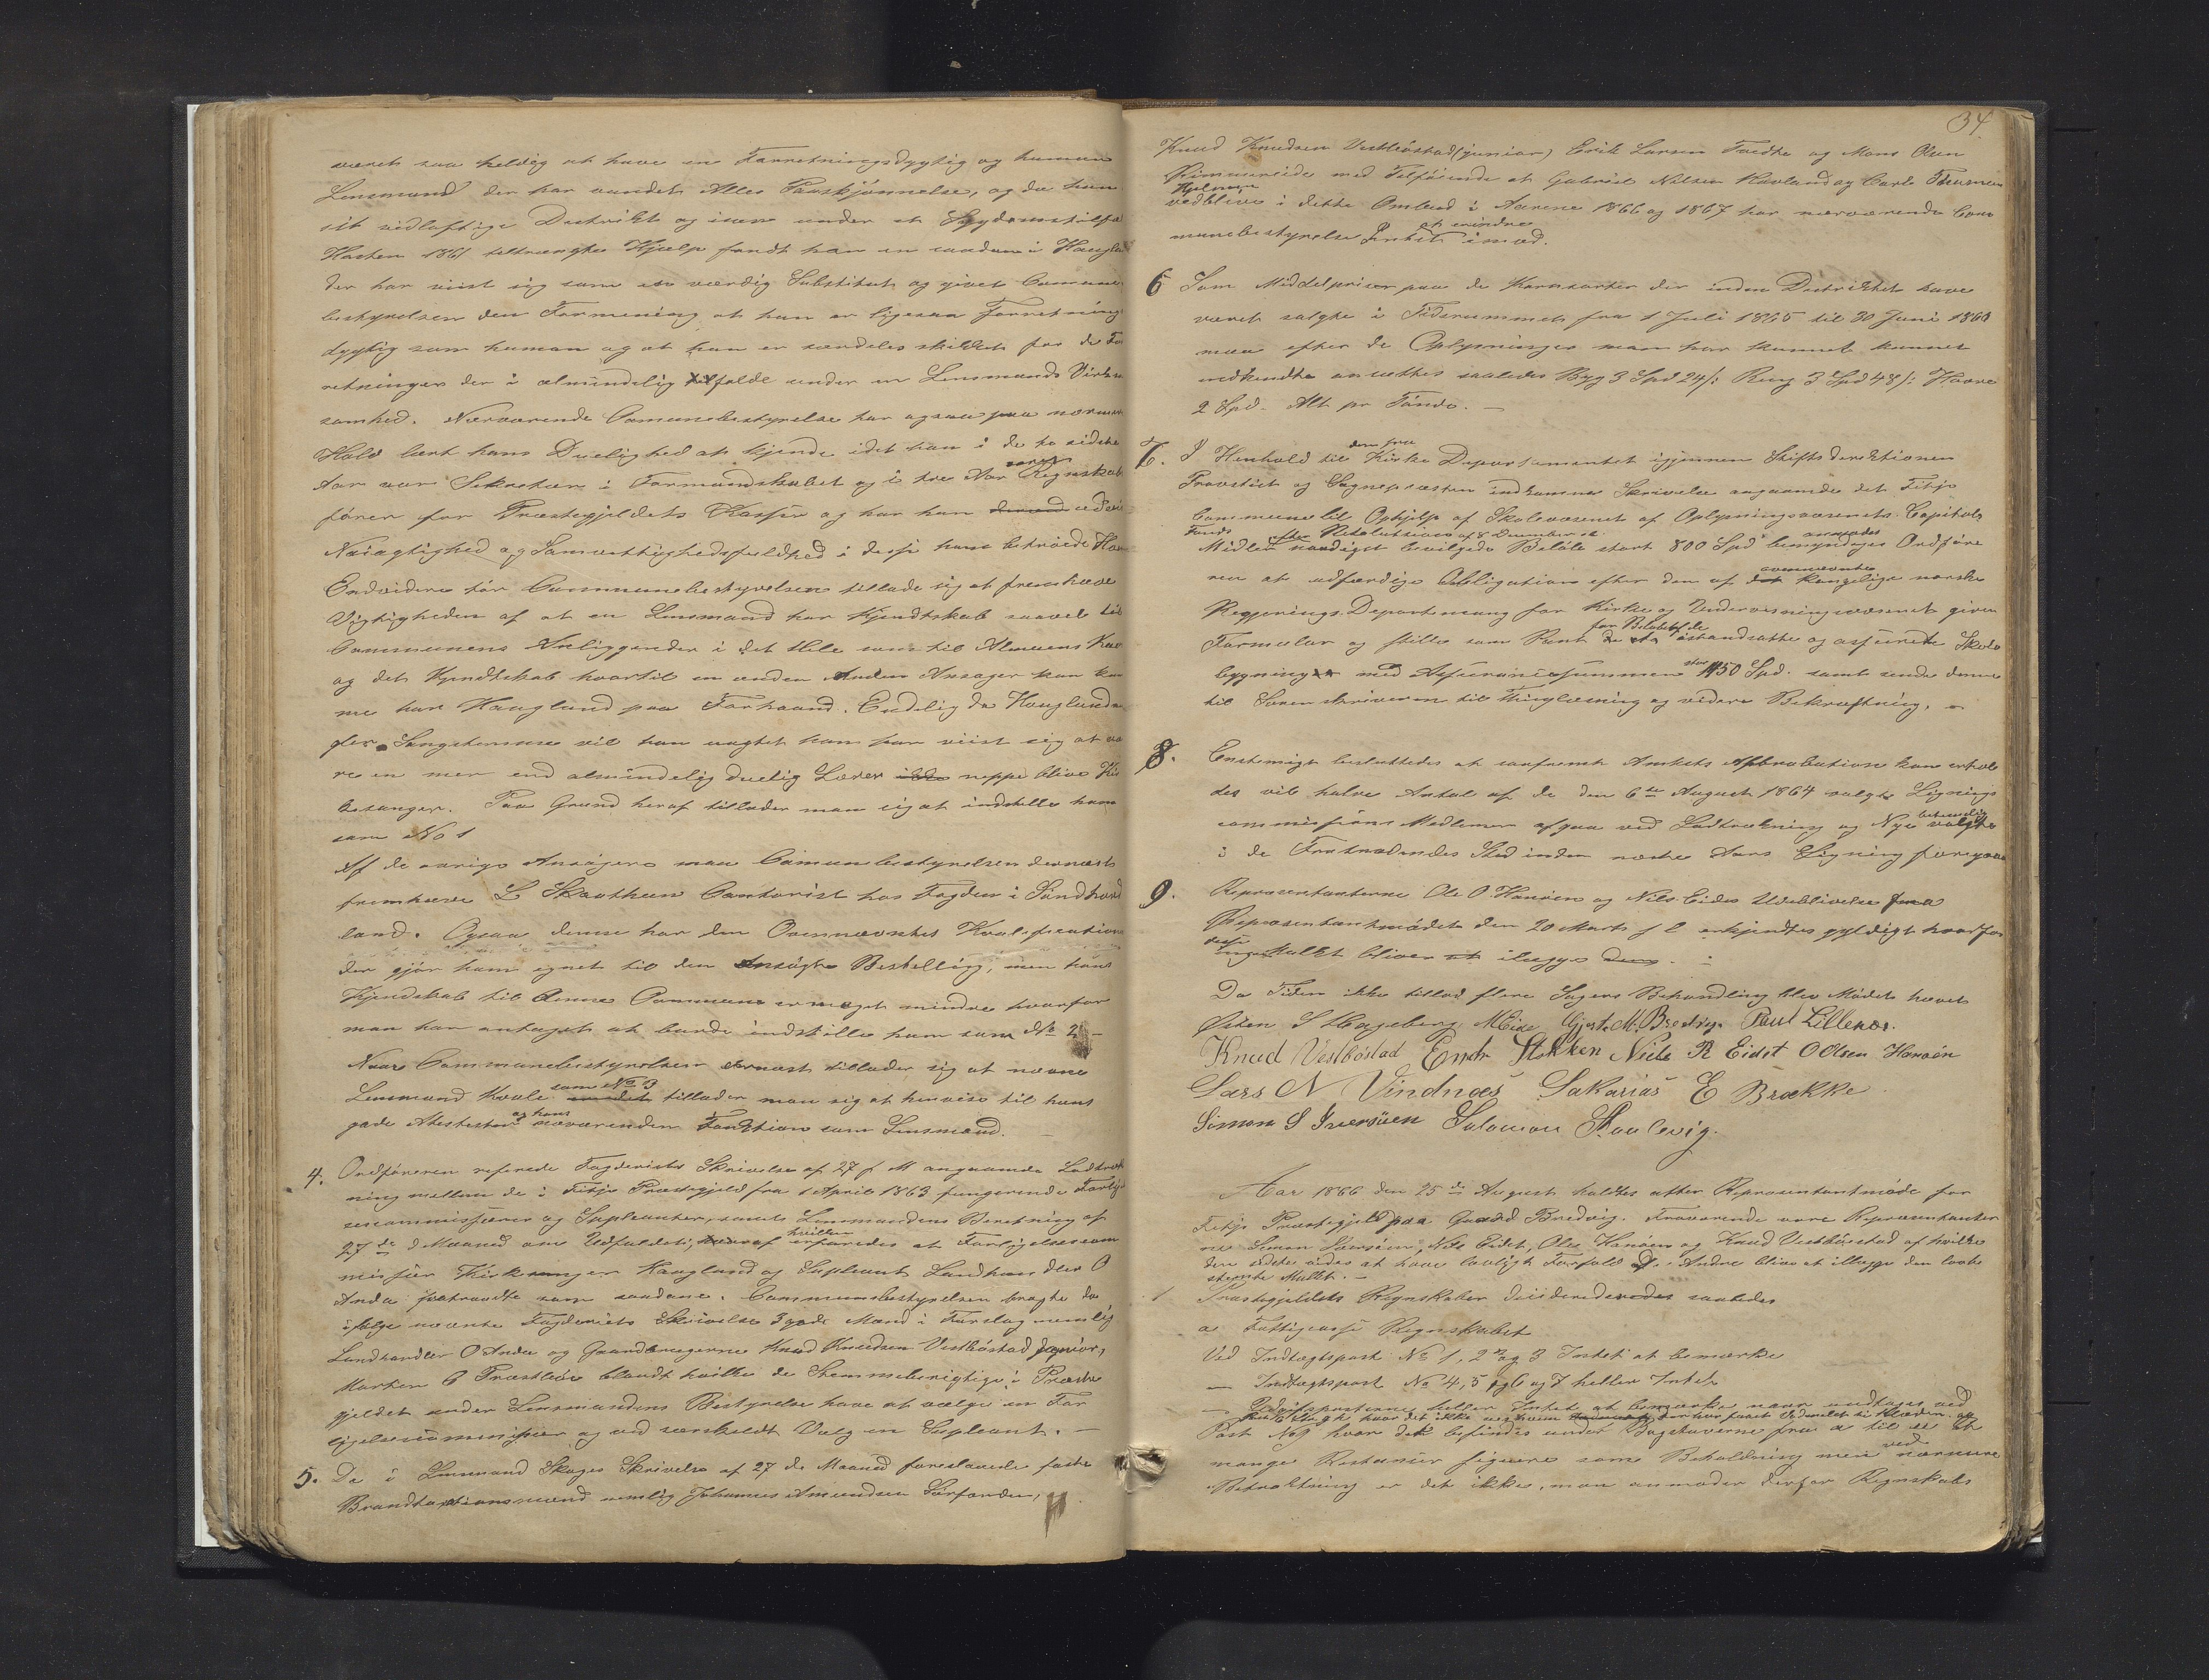 været saa heldig at have en Forretningsdygtig og human
Lensmand der har vundet Alles Paaskjønnelse, og da han
sit vidløftige Distrikt og især under et Sygdomstilfælde
Høsten 1861 tiltrængte Hjælp fandt han en saadan i Haugland
der har viist sig som en værdig Substitut og givet Commune
bestyrelsen den Formening at han er ligesaa Forretnings
dygtig som human og at han er særdeles skikket for de For
retninger der i almindelig tilfælde under en Lensmands Virk
somhed. Nærværende Comunebestyrelse har ogsaa paa nærmere
Hold lært hans Duelighed at kjende idet han i de to sidste
Aar var Sekretær i Formandskabet og i tre Aar været Regnskabs
fører for Præstegjeldets Kasser og har han udvist
Nøiagtighed og Samvittighedsfuldhed i disse ham betroede Hverv
Endvidere tør Communebestyrelsen tillade sig at fremhæve
Vigtigheden af at en Lensmand har Kjendskab saavel til
Communens Anliggender i det Hele som til Almuens Kaar
og det Kjendskab hvortil en anden Ansøger kan kom
me har Haugland paa Forhaand. Endelig da Hauglands
Sangstemme vil han uagtet ham har viist sig at væ
re en mer end almindelig duelig Lærer neppe blive Kir
kesanger. Paa Grund heraf tillader man sig at indstille ham
som No 1
Af de øvrige Ansøgere maa Comunebestyrelsen dernæst
fremhæve L Skaathun Contorist hos Fogden i Søndhord
land. Ogsaa denne har den Ovennævntes Kvalification
der gjør ham egnet til den Ansøgte Bestilling, men hans
Kjendskab til denne Commune er meget mindre hvorfor
man har antaget at burde indstille ham som No 2 -
Naar Communebestyrelsen dernæst tillader sig at nævne
Lensmand Kvale som No 3 tillader man sig at henvise til hans
gode Atestester og hans nuværende Funktion som Lensmand. -
4. Ordføreren referede Fogderiets Skrivelse af 27 f M angaaende Lodtræk
ning mellem de i Fitje Præstegjeld fra 1 April 1863 fungerende Forligel
sescommissærer og Supleanter, samt Lensmandens Beretning af
27de d Maaned om Udfaldet, hvilken erfaredes at Forligelsescom
missær Kirkesanger Haugland og Supleant Landhandler O
Anda fratraadte som saadane. Communebestyrelsen bragte da
ifølge nævnte Fogderiets Skrivelse 3 gode Mænd i Forslag nemlig
Landhandler O Anda og Gaardbrugerne Knud Knudsen Vestbøstad junior,
Morten O Træstløe blandt hvilke de Stemmeberigtige i Præste
gjeldet under Lensmandens Bestyrelse have at vælge en For
ligelsescommissær og ved særskildt Valg en Supleant. -
5. Da i Lensmand Skages Skrivelse af 27 de Maaned foreslaaede faste
Brandtaxtionsmænd nemlig Johannes Amundsen Sørfonden,
34
Knud Knudsen Vestbøstad (junior) Erik Larsen Tvedte og Mons Olsen
Rimmereide med Tilføiende at Gabriel Nilsen Kavland og Carl
Hjelmen
vedblive i dette Ombud i Aarene 1866 og 1867 har nærværende Com
munebestyrelse Intet at erindre imod.
6 Som Middelpriser paa de Kornsorter der inden Distriktet have
været salgte i Tidsrummet fra 1 Juli 1865 til 30 Juni 1866
maa efter de Oplysninger man har kunnet kunnet
indhendte ansættes saaledes Byg 3 Spd 24 /: Rug 3 Spd 48 /: Havre
2 Spd. Alt pr Tønde. -
7. I Henhold til den fra Kirke Departementet igjennem Stiftsdirektionen
Provstiet og Sognepræsten indkomne Skrivelse angaaende det Fitje
Commune til Ophjelp af Skolevæsenet af Oplysningsvæsenets Capitals
Fonds efter Resolution af 8 December
Midler naadigst bevilgede Beløb stort 800 Spd bemyndiges Ordføre
ren at udfærdige Obligation efter den af ovennævnte kongelige norske
Regjerings Departement for Kirke og Undervisningsvæsenet given
Formular og stille som Pant for Beløbet de istandsatte og assurerte Skole
bygninger med Assurancesummen stor 1450 Spd. samt sende denne
til Sorenskriveren til Thinglæsning og videre Bekræftning. -
8. Enstemigt besluttedes at saafremt Amtets Abbrobation kan erhol
des vil halve Antal af de den 6te August 1864 valgte Lignings
commissions Medlemer afgaa ved Lodtrækning og Nye valgte
i de Fratrædendes Sted inden næste Aars Ligning foregaar
9. Repræsentanterne Ole O. Hanøen og Nils Eides Udeblivelse fra
Repræsentantmødet den 20 Marts f l erkjendtes gyldigt hvorfor
ingen Mullkt bliver at ilægge dem. -
Da Tiden ikke tillod flere Sagers Behandling blev Mødet hævet
Østen S Hageberg MEide Gjert M. Bredvig. Paul Lillenes.
Knud Vestbøstad Endr Stokken Niels R Eidet O Olsen Hanøen
Lars N Vindnæs Sakarias E Brække
Simon S Iversøen Salomon Staalevig.
Aar 1866 den 25de August holdtes atter Repræsentantmøde for
Fitje Præstegjeld paa Gaard Bredvig. Fraværende vare Repræsentanter
ne Simon Iversøen, Nils Eidet, Ole Hanøen og Knud Vestbøstad af hvilke
den sidste vides at have lovligt Forfald. D. Andre blive at ilægge den lovbe
stemte Mullkt. -
1 Præstegjeldets Regnskaber desiderededes saaledes
a Fattigcasse Regnskabet
Ved Indtægtspost No 1, 2 og 3 Intet at bemærke
— Indtægtspost No 4, 5 og 6 og 7 heller Intet
— Udgiftsposterne heller Intet at bemærke naar undtages ved
Post No 9 hvor det befindes under Bogstaverne fra a til
mange Restancer figurere som Beholdning men ved nærmere
Betraktning er det ikke, man anmoder derfor Regnskabs